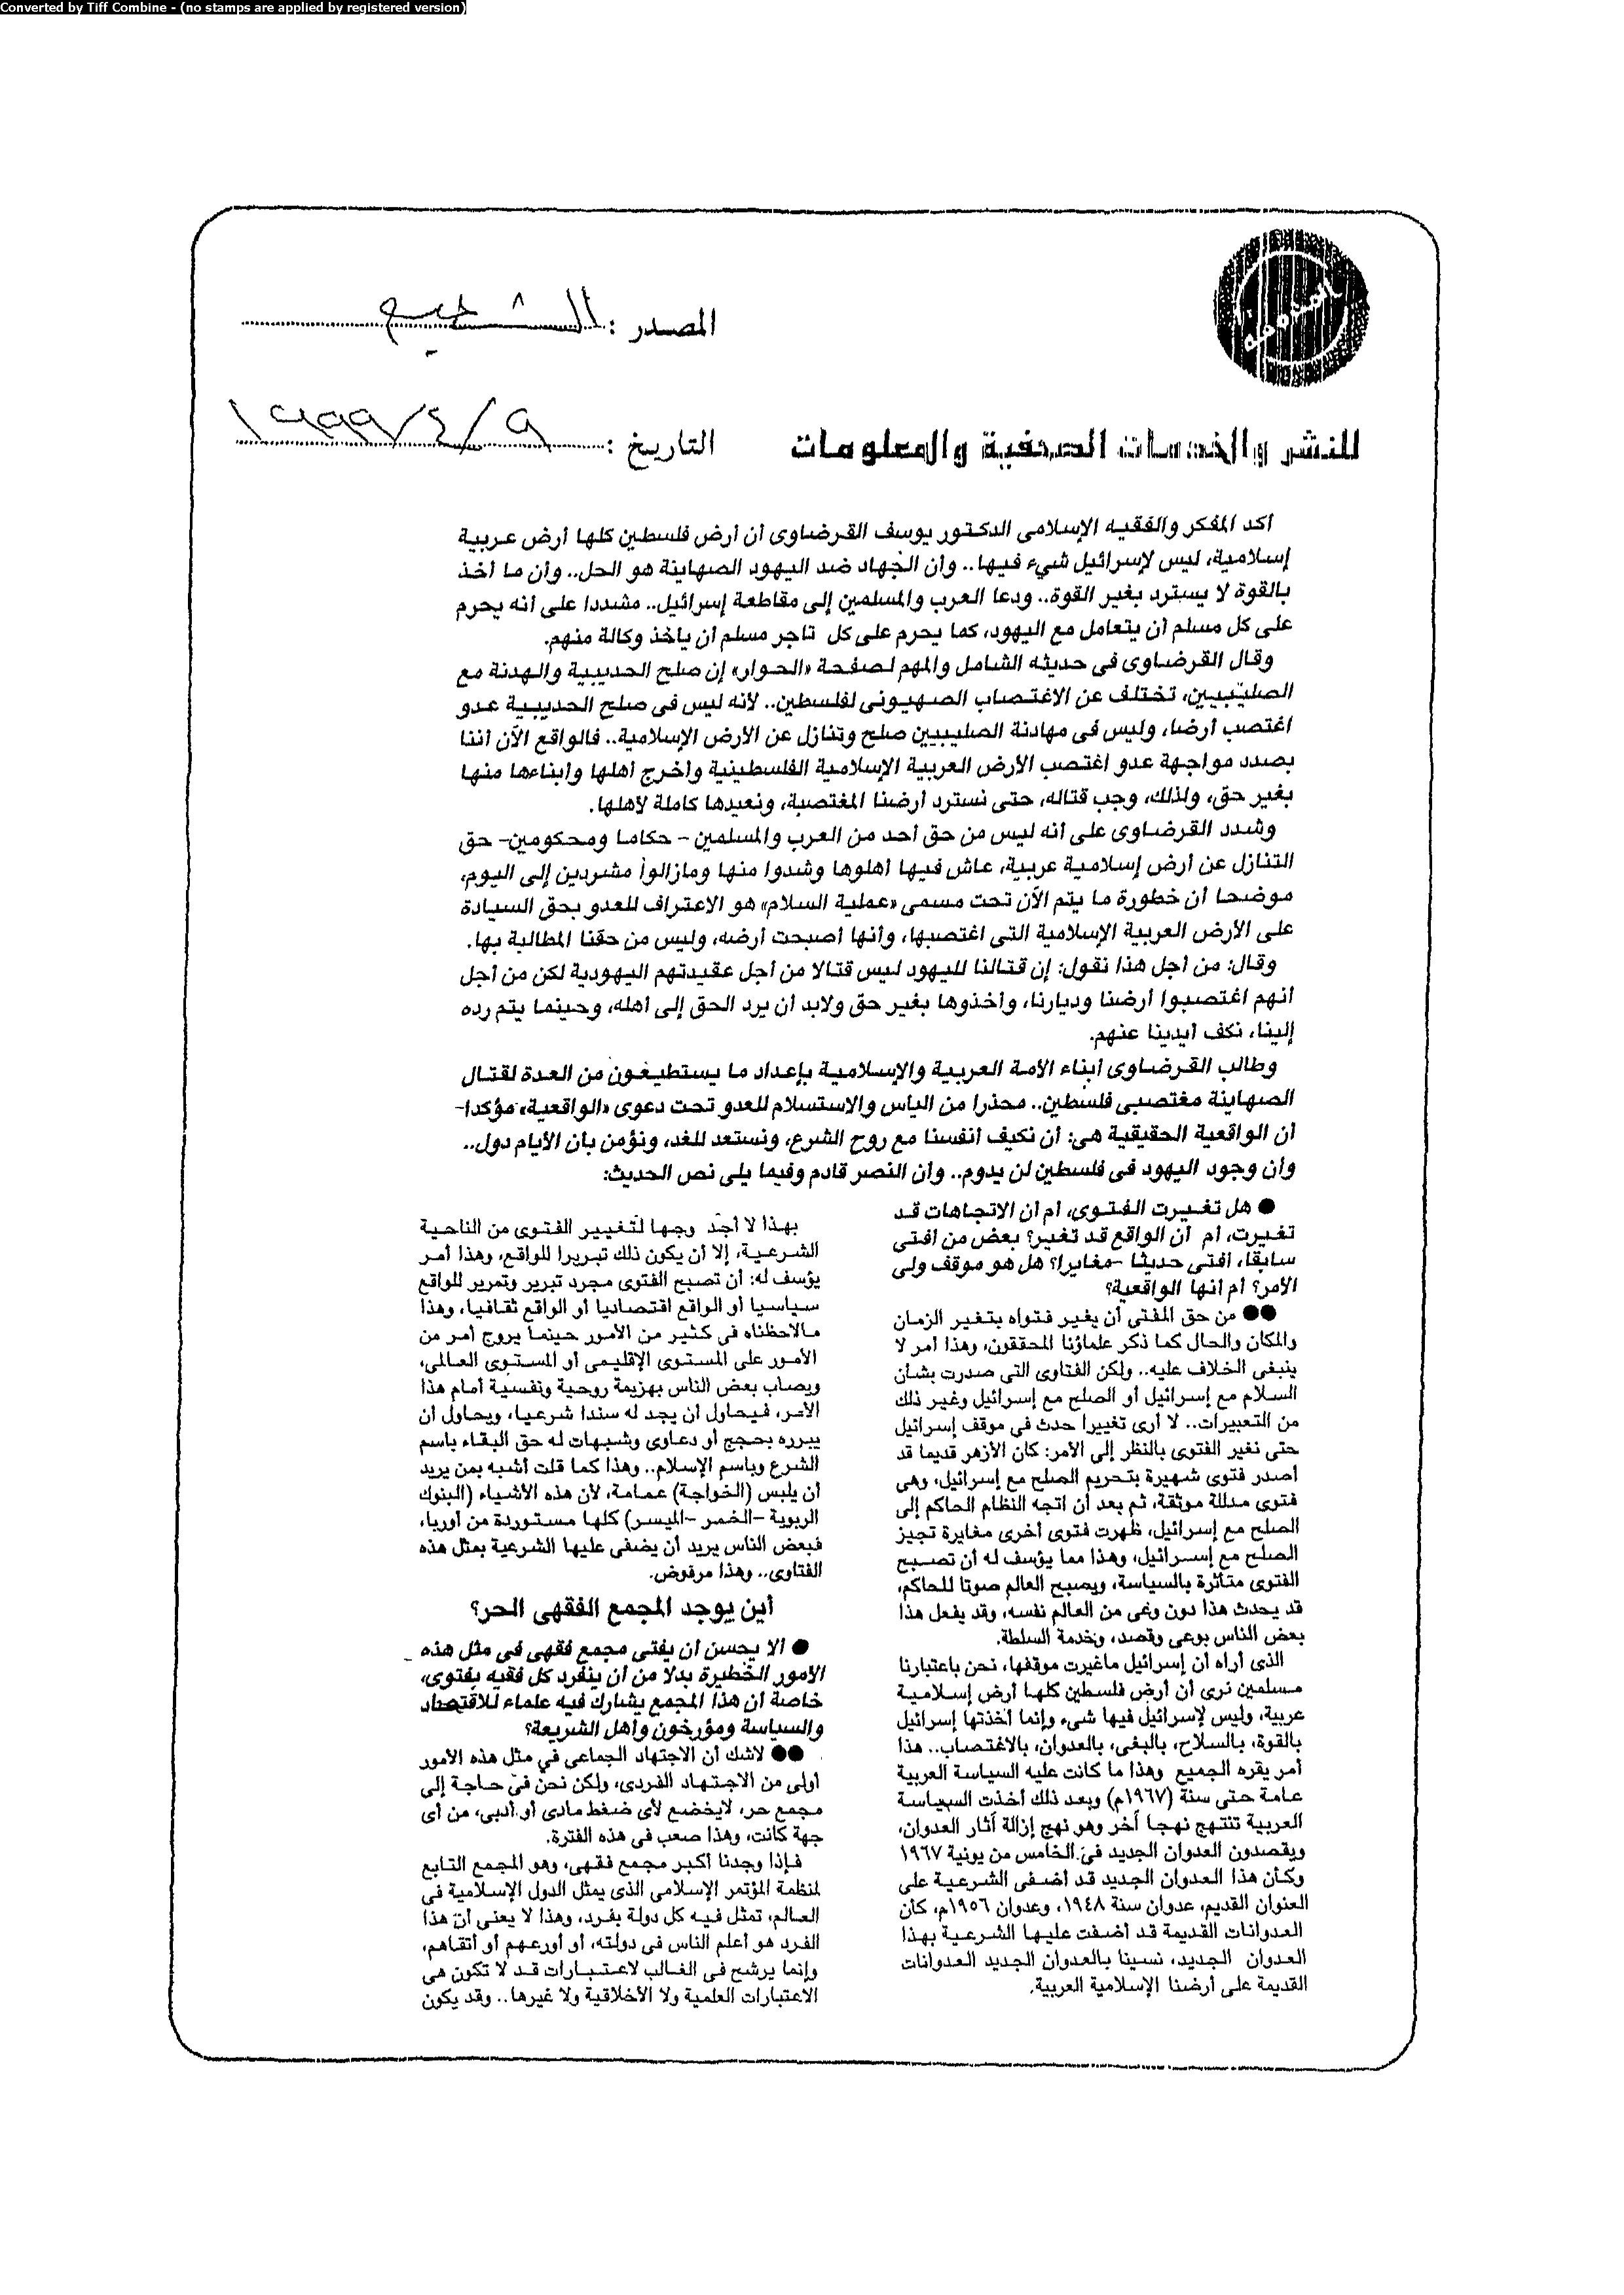 Converted by Tiff Combine - (no stamps are applied by registered version)
المصدر : الشعب
للنشر والخدمات الصحفية والمعلومات
التاريخ : ٩/٤/١٩٩٩
أكد المفكر والفقيه الإسلامى الدكتور يوسف القرضاوى أن أرض فلسطين كلها أرض عربية
إسلامية، ليس لإسرائيل شيء فيها.. وأن الجهاد ضد اليهود الصهاينة هو الحل.. وأن ما أخذ
بالقوة لا يسترد بغير القوة.. ودعا العرب والمسلمين إلى مقاطعة إسرائيل.. مشددا على أنه يحرم
على كل مسلم أن يتعامل مع اليهود، كما يحرم على كل تاجر مسلم أن ياخذ وكالة منهم.
وقال القرضاوى فى حديثه الشامل والمهم لصفحة «الحوار» إن صلح الحديبية والهدنة مع
الصليبيين، تختلف عن الاغتصاب الصهيونى لفلسطين.. لأنه ليس فى صلح الحديبية عدو
اغتصب أرضا، وليس فى مهادنة الصليبيين صلح وتنازل عن الأرض الإسلامية.. فالواقع الآن أننا
بصدد مواجهة عدو اغتصب الأرض العربية الإسلامية الفلسطينية وأخرج أهلها وأبناءها منها
بغير حق، ولذلك، وجب قتاله، حتى نسترد أرضنا المغتصبة، ونعيدها كاملة لأهلها.
وشدد القرضاوى على أنه ليس من حق أحد من العرب والمسلمين - حكاما ومحكومين- حق
التنازل عن أرض إسلامية عربية، عاش فيها أهلوها وشدوا منها ومازالوا مشردين إلى اليوم،
موضحا أن خطورة ما يتم الآن تحت مسمى «عملية السلام» هو الاعتراف للعدو بحق السيادة
على الأرض العربية الإسلامية التى اغتصبها، وأنها أصبحت أرضه، وليس من حقنا المطالبة بها.
وقال: من أجل هذا نقول: إن قتالنا لليهود ليس قتالا من أجل عقيدتهم اليهودية لكن من أجل
أنهم اغتصبوا أرضنا وديارنا، وأخذوها بغير حق ولابد أن يرد الحق إلى أهله، وحينما يتم رده
إلينا، نكف أيدينا عنهم.
وطالب القرضاوى أبناء الأمة العربية والإسلامية بإعداد ما يستطيعون من العدة لقتال
الصهاينة مغتصبى فلسطين.. محذرا من الياس والاستسلام للعدو تحت دعوى «الواقعية» مؤكدا-
أن الواقعية الحقيقية هى: أن نكيف أنفسنا مع روح الشرع، ونستعد للغد، ونؤمن بأن الأيام دول..
وأن وجود اليهود فى فلسطين لن يدوم.. وأن النصر قادم وفيما يلى نص الحديث:
● هل تغيرت الفتوى، أم أن الاتجاهات قد
تغيرت، أم أن الواقع قد تغير؟ بعض من أفتى
سابقا، أفتى حديثا -مغايرا؟ هل هو موقف ولى
الأمر؟ أم أنها الواقعية؟
●● من حق المفتى أن يغير فتواه بتغير الزمان
والمكان والحال كما ذكر علماؤنا المحققون، وهذا أمر لا
ينبغى الخلاف عليه.. ولكن الفتاوى التى صدرت بشأن
السلام مع إسرائيل أو الصلح مع إسرائيل وغير ذلك
من التعبيرات.. لا أرى تغييرا حدث فى موقف إسرائيل
حتى نغير الفتوى بالنظر إلى الأمر: كان الأزهر قديما قد
أصدر فتوى شهيرة بتحريم الصلح مع إسرائيل، وهى
فتوى مدللة موثقة، ثم بعد أن اتجه النظام الحاكم إلى
الصلح مع إسرائيل، ظهرت فتوى أخرى مغايرة تجيز
الصلح مع إسرائيل، وهذا مما يؤسف له أن تصبح
الفتوى متأثرة بالسياسة، ويصبح العالم صوتا للحاكم،
قد يحدث هذا دون وعى من العالم نفسه، وقد يفعل هذا
بعض الناس بوعى وقصد، وخدمة السلطة.
الذى أراه أن إسرائيل ماغيرت موقفها، نحن باعتبارنا
مسلمين نرى أن أرض فلسطين كلها أرض إسلامية
عربية، وليس لإسرائيل فيها شىء وإنما أخذتها إسرائيل
بالقوة، بالسلاح، بالبغى، بالعدوان، بالاغتصاب.. هذا
أمر يقره الجميع وهذا ما كانت عليه السياسة العربية
عامة حتى سنة (١٩٦٧م) وبعد ذلك أخذت السياسة
العربية تنتهج نهجا آخر وهو نهج إزالة آثار العدوان،
ويقصدون العدوان الجديد فى الخامس من يونية ١٩٦٧
وكأن هذا العدوان الجديد قد أضفى الشرعية على
العنوان القديم، عدوان سنة ١٩٤٨، وعدوان ١٩٥٦م، كأن
العدوانات القديمة قد أضفت عليها الشرعية بهذا
العدوان الجديد، نسينا بالعدوان الجديد العدوانات
القديمة على أرضنا الإسلامية العربية.
بهذا لا أجد وجها لتغيير الفتوى من الناحية
الشرعية، إلا أن يكون ذلك تبريرا للواقع، وهذا أمر
يؤسف له: أن تصبح الفتوى مجرد تبرير وتمرير للواقع
سياسيا أو الواقع اقتصاديا أو الواقع ثقافيا، وهذا
مالاحظناه فى كثير من الأمور حينما يروج أمر من
الأمور على المستوى الإقليمى أو المستوى العالمى،
ويصاب بعض الناس بهزيمة روحية ونفسية أمام هذا
الأمر، فيحاول أن يجد له سندا شرعيا، ويحاول أن
يبرره بحجج أو دعاوى وشبهات له حق البقاء باسم
الشرع وباسم الإسلام.. وهذا كما قلت أشبه بمن يريد
أن يلبس (الخواجة) عمامة، لأن هذه الأشياء (البنوك
الربوية -الخمر -الميسر) كلها مستوردة من أوربا،
فبعض الناس يريد أن يضفى عليها الشرعية بمثل هذه
الفتاوى.. وهذا مرفوض.
أين يوجد المجمع الفقهى الحر؟
● ألا يحسن أن يفتى مجمع فقهى فى مثل هذه
الأمور الخطيرة بدلا من أن ينفرد كل فقيه بفتوى،
خاصة أن هذا المجمع يشارك فيه علماء للاقتصاد
والسياسة ومؤرخون وأهل الشريعة؟
●● لاشك أن الاجتهاد الجماعى في مثل هذه الأمور
أولى من الاجتهاد الفردى، ولكن نحن فى حاجة إلى
مجمع حر، لايخضع لأى ضغط مادى أو أدبى، من أى
جهة كانت، وهذا صعب فى هذه الفترة.
فإذا وجدنا أكبر مجمع فقهى، وهو المجمع التابع
لمنظمة المؤتمر الإسلامى الذى يمثل الدول الإسلامية فى
العالم، تمثل فيه كل دولة بفرد، وهذا لا يعنى أن هذا
الفرد هو أعلم الناس فى دولته، أو أورعهم أو أتقاهم،
وإنما يرشح فى الغالب لاعتبارات قد لا تكون هى
الاعتبارات العلمية ولا الأخلاقية ولا غيرها.. وقد يكون